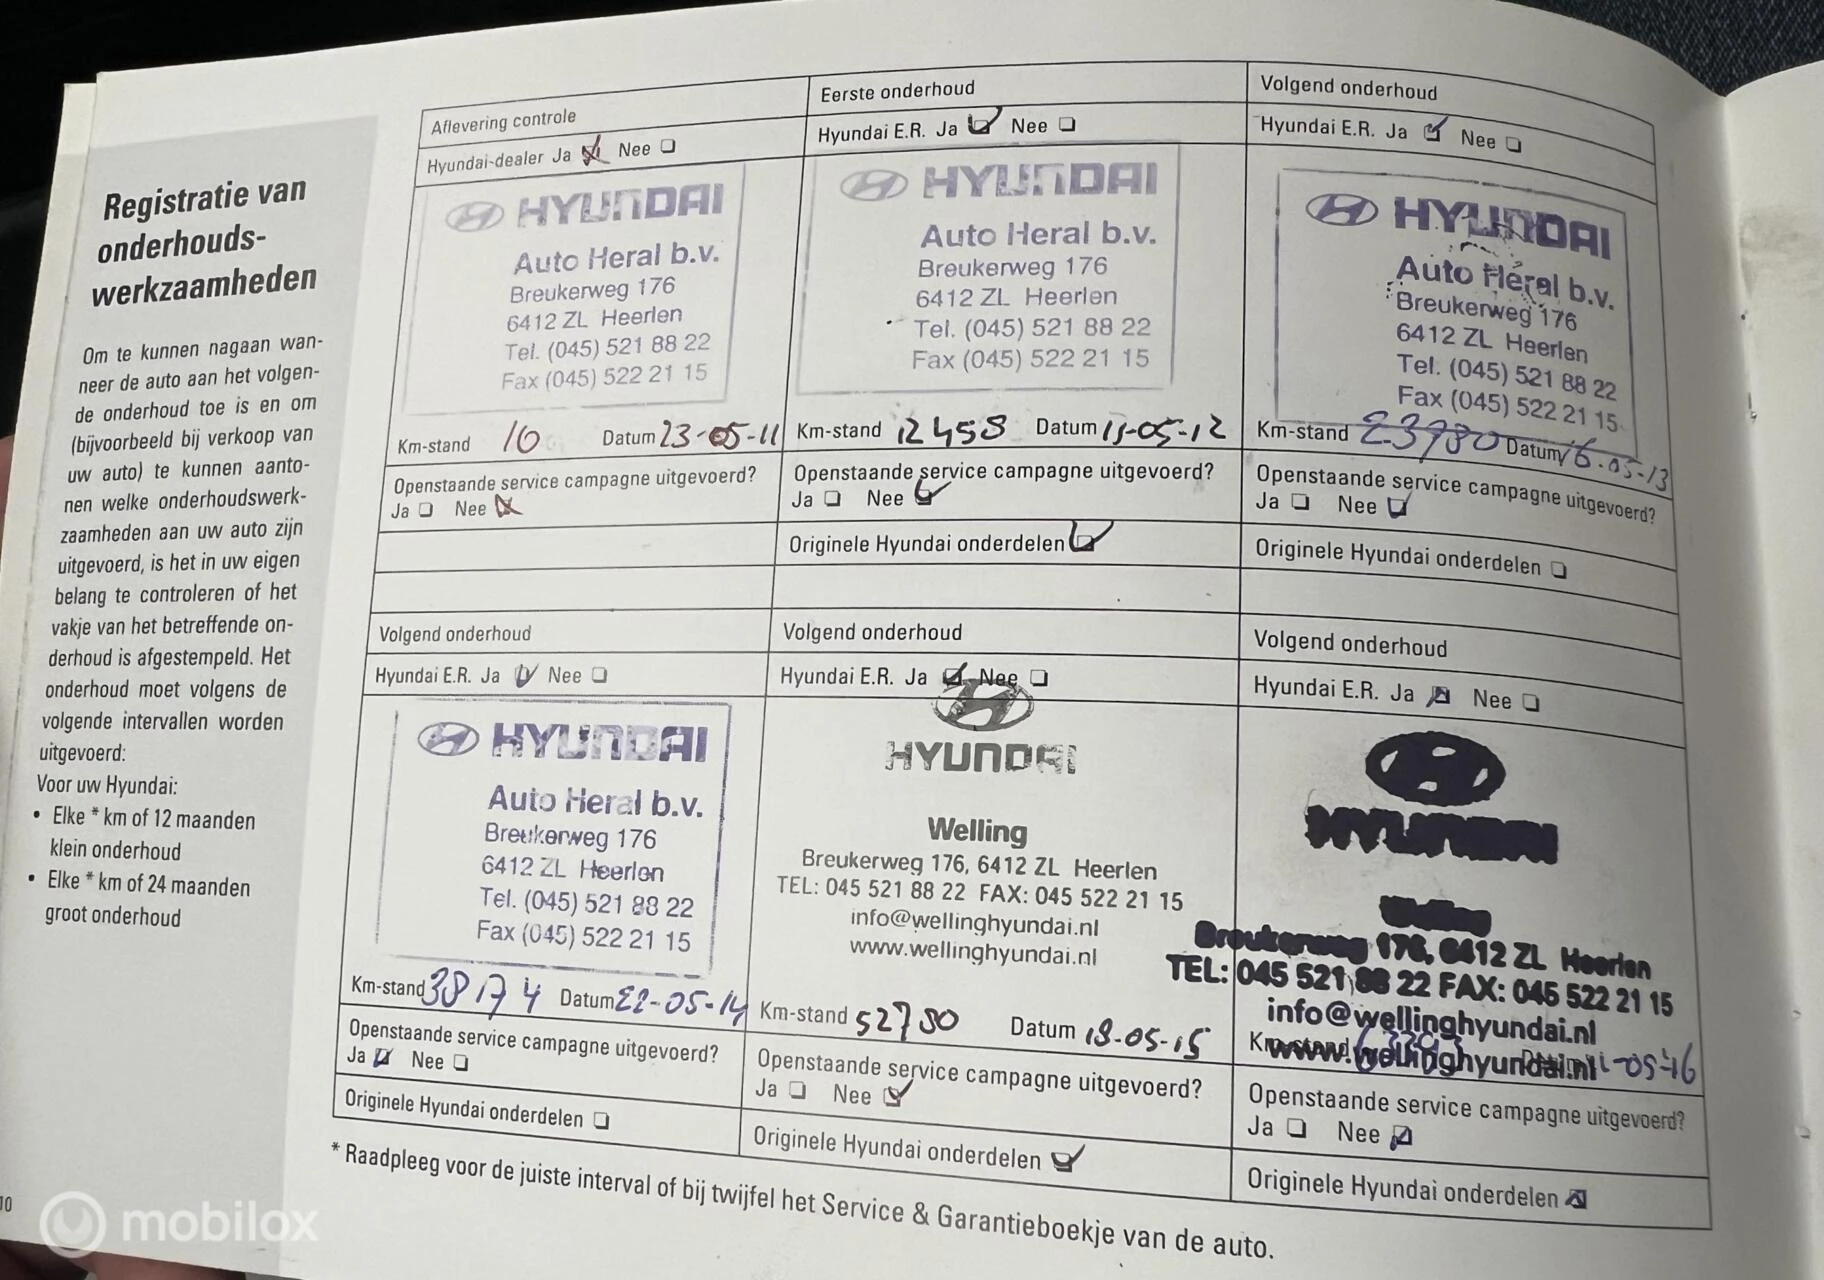 Registratie van
onderhouds-
werkzaamheden
Om te kunnen nagaan wan-
neer de auto aan het volgen-
de onderhoud toe is en om
(bijvoorbeeld bij verkoop van
uw auto) te kunnen aanto-
nen welke onderhoudswerk-
zaamheden aan uw auto zijn
uitgevoerd, is het in uw eigen
belang te controleren of het
vakje van het betreffende on-
derhoud is afgestempeld. Het
onderhoud moet volgens de
volgende intervallen worden
uitgevoerd:
Voor uw Hyundai:
• Elke * km of 12 maanden
klein onderhoud
• Elke * km of 24 maanden
groot onderhoud
10
Aflevering controle
Hyundai-dealer Ja Nee
HYUNDAI
Auto Heral b.v.
Breukerweg 176
6412 ZL Heerlen
Tel. (045) 521 88 22
Fax (045) 522 21 15
Km-stand 10 Datum 23-05-11
Openstaande service campagne uitgevoerd?
Ja Nee
Eerste onderhoud
Hyundai E.R. Ja Nee
HYUNDAI
Auto Heral b.v.
Breukerweg 176
6412 ZL Heerlen
Tel. (045) 521 88 22
Fax (045) 522 21 15
Km-stand 12458 Datum 11-05-12
Openstaande service campagne uitgevoerd?
Ja Nee
Originele Hyundai onderdelen
Volgend onderhoud
Hyundai E.R. Ja Nee
HYUNDAI
Auto Heral b.v.
Breukerweg 176
6412 ZL Heerlen
Tel. (045) 521 88 22
Fax (045) 522 21 15
Km-stand 23780 Datum 16-05-13
Openstaande service campagne uitgevoerd?
Ja Nee
Originele Hyundai onderdelen
Volgend onderhoud
Hyundai E.R. Ja Nee
HYUNDAI
Auto Heral b.v.
Breukerweg 176
6412 ZL Heerlen
Tel. (045) 521 88 22
Fax (045) 522 21 15
Km-stand 38174 Datum 22-05-14
Openstaande service campagne uitgevoerd?
Ja Nee
Originele Hyundai onderdelen
Volgend onderhoud
Hyundai E.R. Ja Nee
HYUNDAI
Welling
Breukerweg 176, 6412 ZL Heerlen
TEL: 045 521 88 22 FAX: 045 522 21 15
info@wellinghyundai.nl
www.wellinghyundai.nl
Km-stand 52780 Datum 18-05-15
Openstaande service campagne uitgevoerd?
Ja Nee
Originele Hyundai onderdelen
Volgend onderhoud
Hyundai E.R. Ja Nee
HYUNDAI
Welling
Breukerweg 176, 6412 ZL Heerlen
TEL: 045 521 88 22 FAX: 045 522 21 15
info@wellinghyundai.nl
www.wellinghyundai.nl
Km-stand
Openstaande service campagne uitgevoerd?
Ja Nee
Originele Hyundai onderdelen
* Raadpleeg voor de juiste interval of bij twijfel het Service & Garantieboekje van de auto.
mobilox